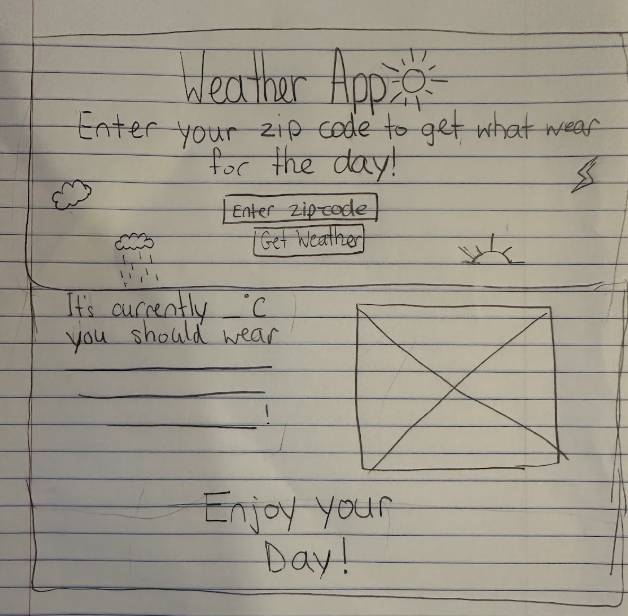 Weather App
Enter your zip code to get what wear
for the day!
Enter zip-code
Get Weather
It's currently _°C
you should wear
!
Enjoy your
Day!